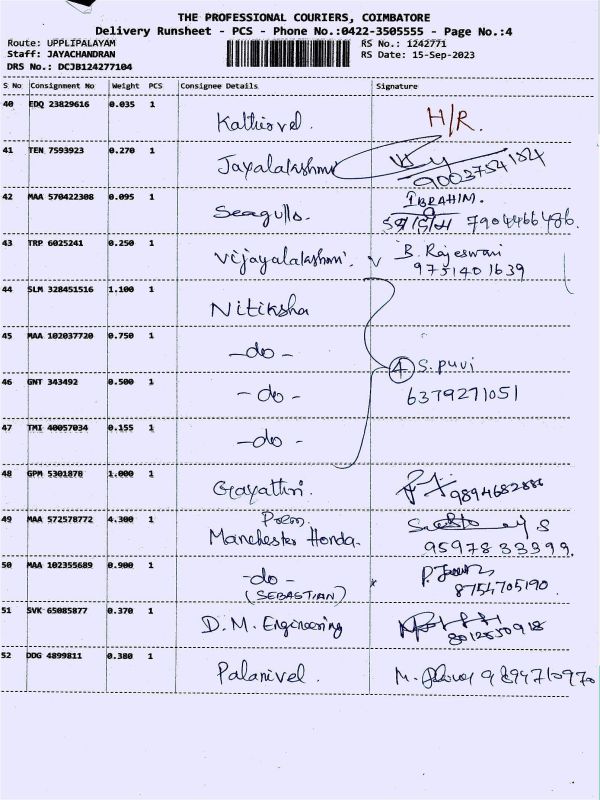 THE PROFESSIONAL COURIERS, COIMBATORE
Delivery Runsheet - PCS - Phone No.:0422-3505555 - Page No.:4
Route: UPPLIPALAYAM RS No.: 1242771
Staff: JAYACHANDRAN RS Date: 15-Sep-2023
DRS No.: DCJB124277104
S No Consignment No Weight PCS Consignee Details Signature
40 EDQ 23829616 0.035 1 Kathirvel. H/R.
41 TEN 7593923 0.270 1 Jayalakshmi
9003754184
42 MAA 570422308 0.095 1 Seagulls. IBRAHIM.
7904466486.
43 TRP 6025241 0.250 1 Vijayalakshmi. B. Rajeswari
9751401639
44 SLM 328451516 1.100 1 Nitiksha
45 MAA 102037720 0.750 1 -do-
④ S. Puvi
46 GNT 343492 0.500 1 -do- 6379271051
47 TMI 40057034 0.155 1 -do-
48 GPM 5301878 1.000 1 Gayathri. 9894682886
49 MAA 572578772 4.300 1 Manchester Honda.
9597833399.
50 MAA 102355689 0.900 1 -do-
(SEBASTIAN) 8754705190
51 SVK 65085877 0.370 1 D.M. Engineering
8012550918
52 DDG 4899811 0.380 1 Palanivel. M. 9894710970